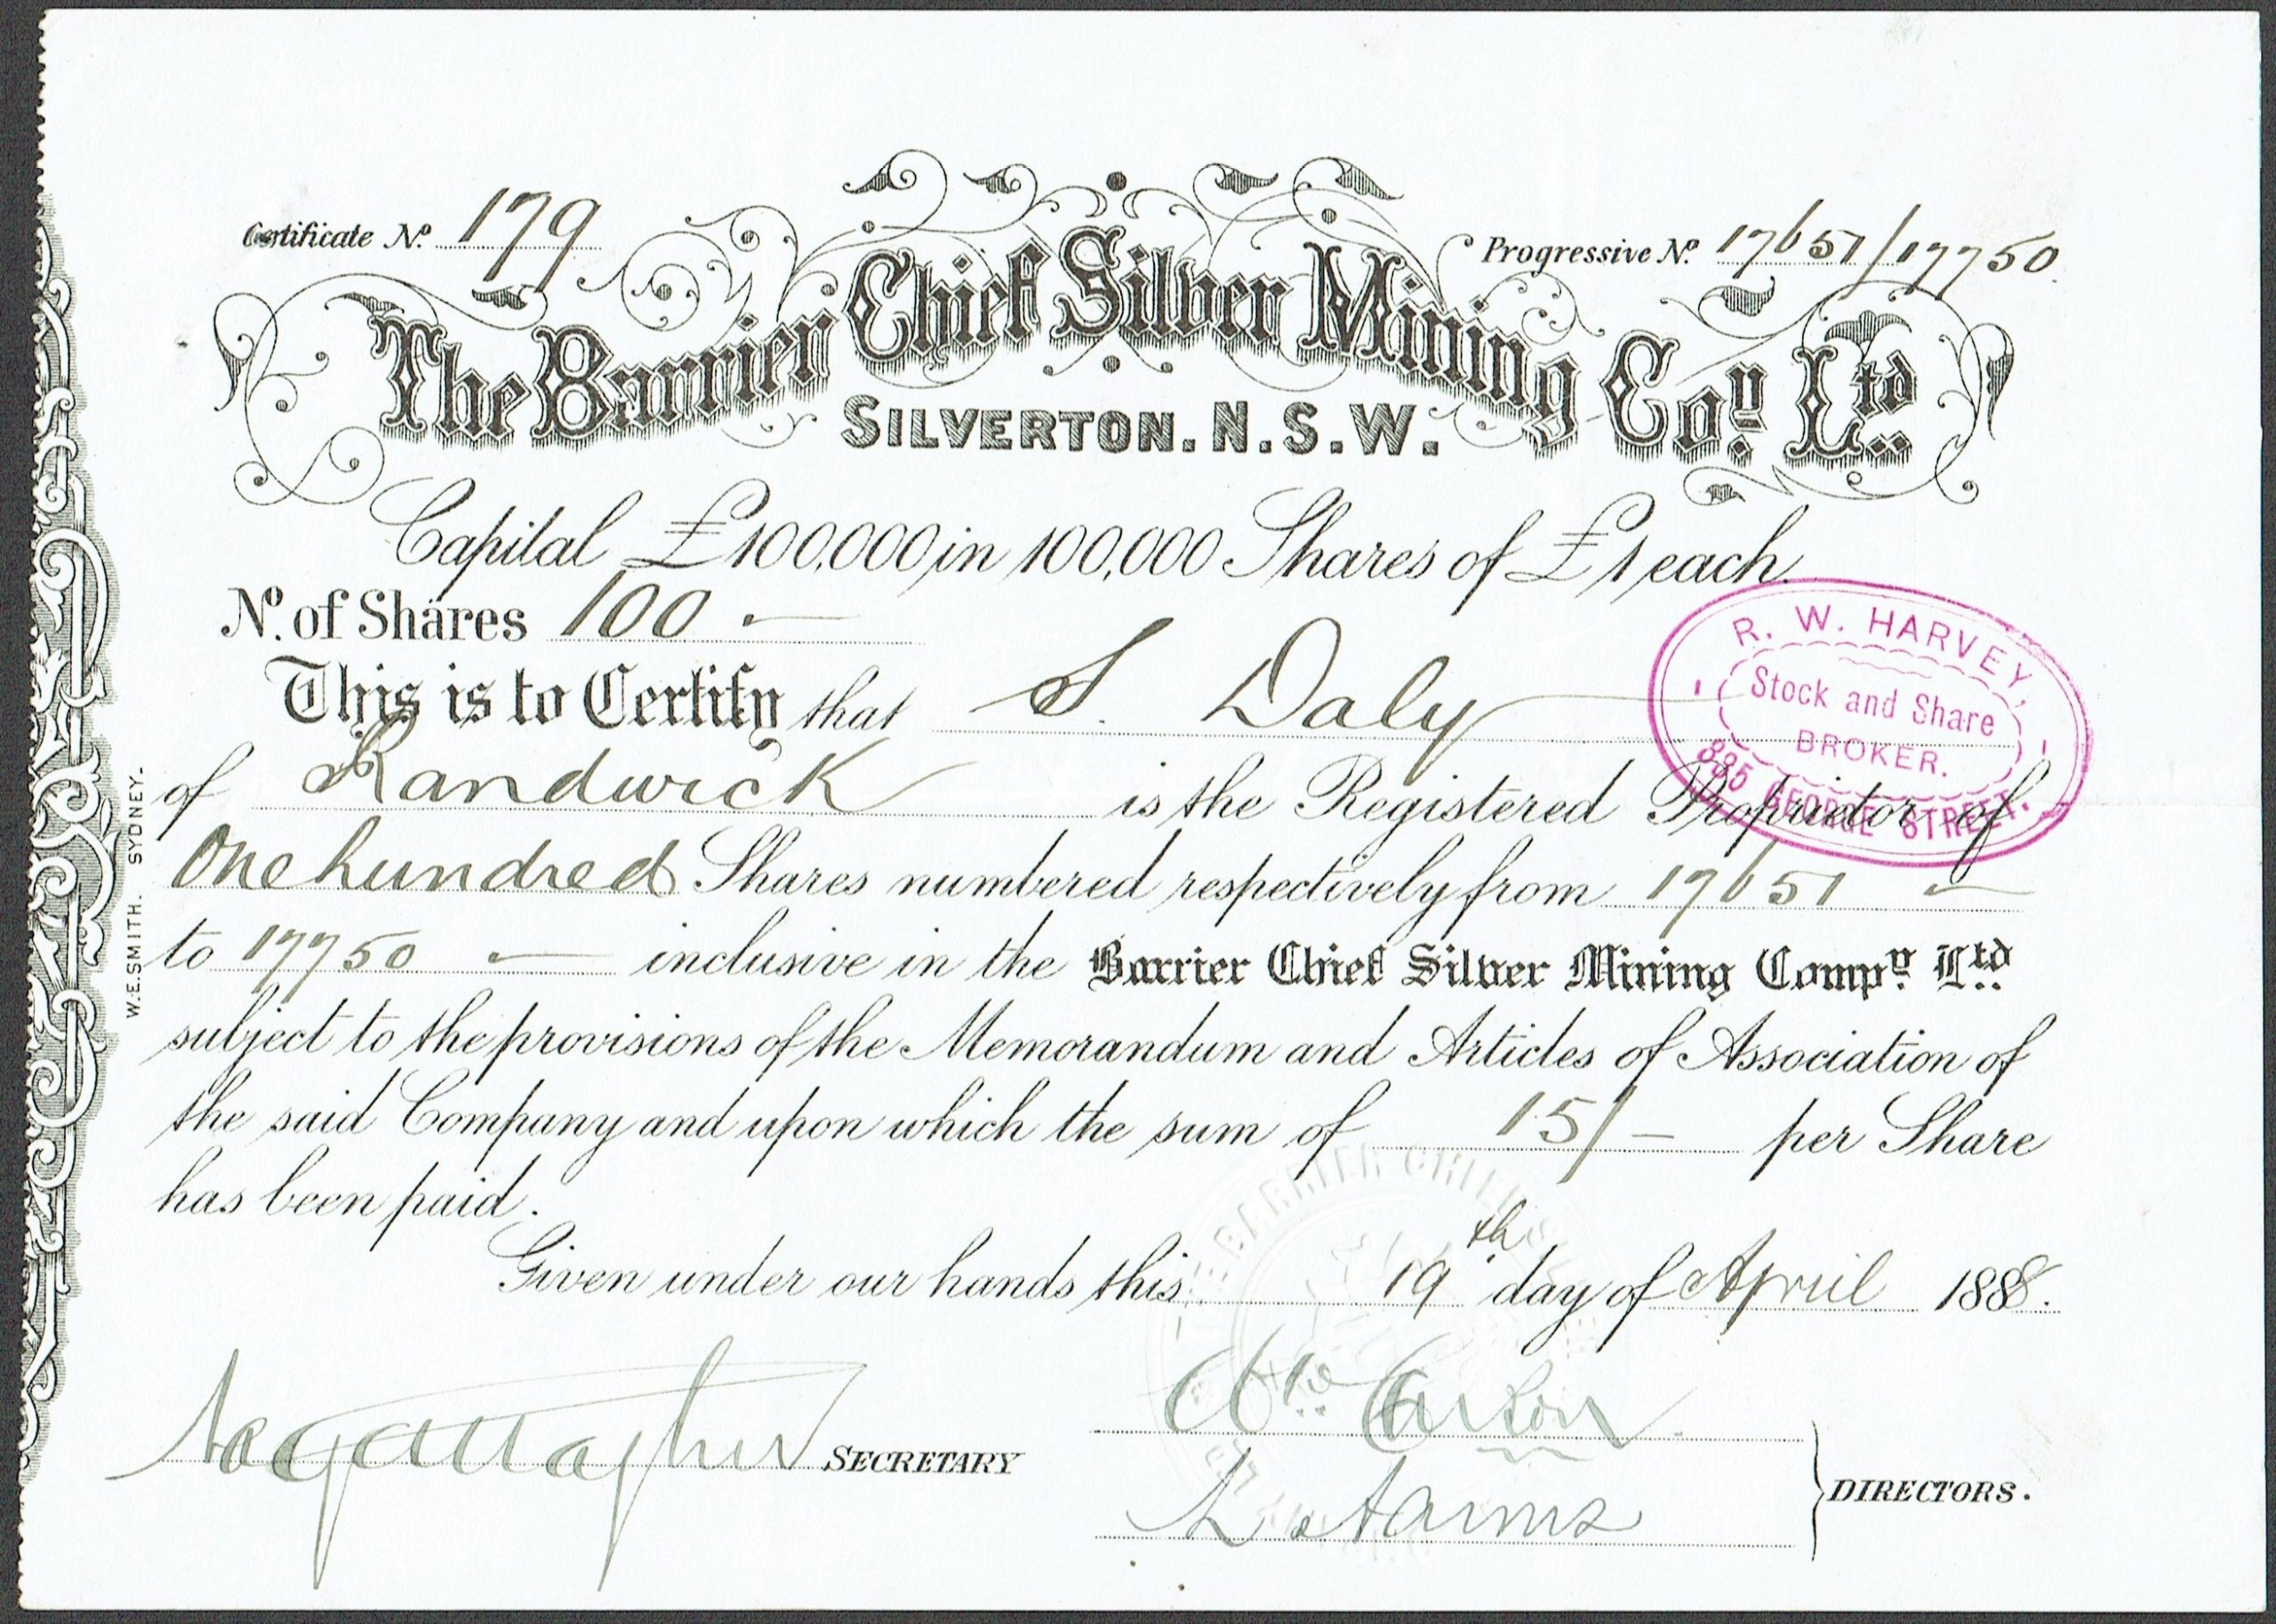 Certificate No. 179
Progressive No. 17651/17750
The Barrier Chief Silver Mining Coy. Ltd
SILVERTON. N.S.W.
Capital £100,000 in 100,000 Shares of £1 each.
No. of Shares 100 —
R. W. HARVEY,
Stock and Share
BROKER.
GEORGE STREET.
This is to Certify that S. Daly
of Randwick is the Registered Proprietor of
One hundred Shares numbered respectively from 17651 —
to 17750 — inclusive in the Barrier Chief Silver Mining Compy. Ltd
subject to the provisions of the Memorandum and Articles of Association of
the said Company and upon which the sum of 15/- per Share
has been paid.
Given under our hands this 19th day of April 1888.
SECRETARY
DIRECTORS.
W.E.SMITH. SYDNEY.
BARRIER CHIEF